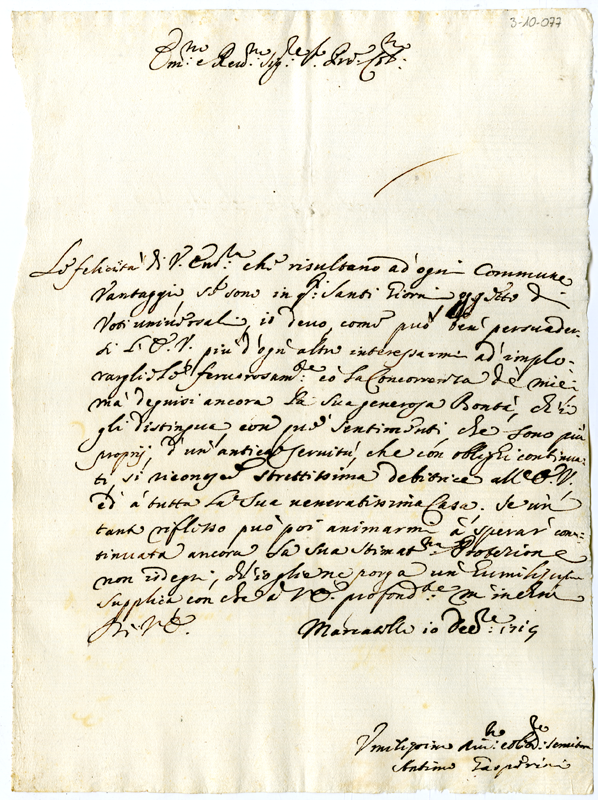 3-10-077
Em:no e Rev:mo Sig:re P.
Le felicità di V. Em:za che risultano ad ogni Commune
Vantaggio se sono in q:ti Santi Giorni oggetto di
Voti universali, io devo, come può ben persuader-
si L'E.V. più d'ogn'altro interessarmi ad implo-
rargliele fervorosam:te e la Concorrenza de miei
má degnisi ancora la sua generosa Bontà, ch'io
gli distingua con que sentimenti che sono più
proprij d'un'antica servitù, che con oblighi continua-
ti, si riconosce strettissima debitrice all'E.V.
ed à tutta la Sua veneratissima Casa. Se un
tant riflesso può poi animarmi à sperar con-
tinuata ancora la sua stimat:ma Protezione
non isdegni, ch'io gliene porga un'Humilissima
supplica con che à V.E. profond:te m'inchino
Di V.E.
Mercatello 10 Dec:re 1719
Umilissimo Div:mo et Obl:mo Servitore
Antimo Gasparini